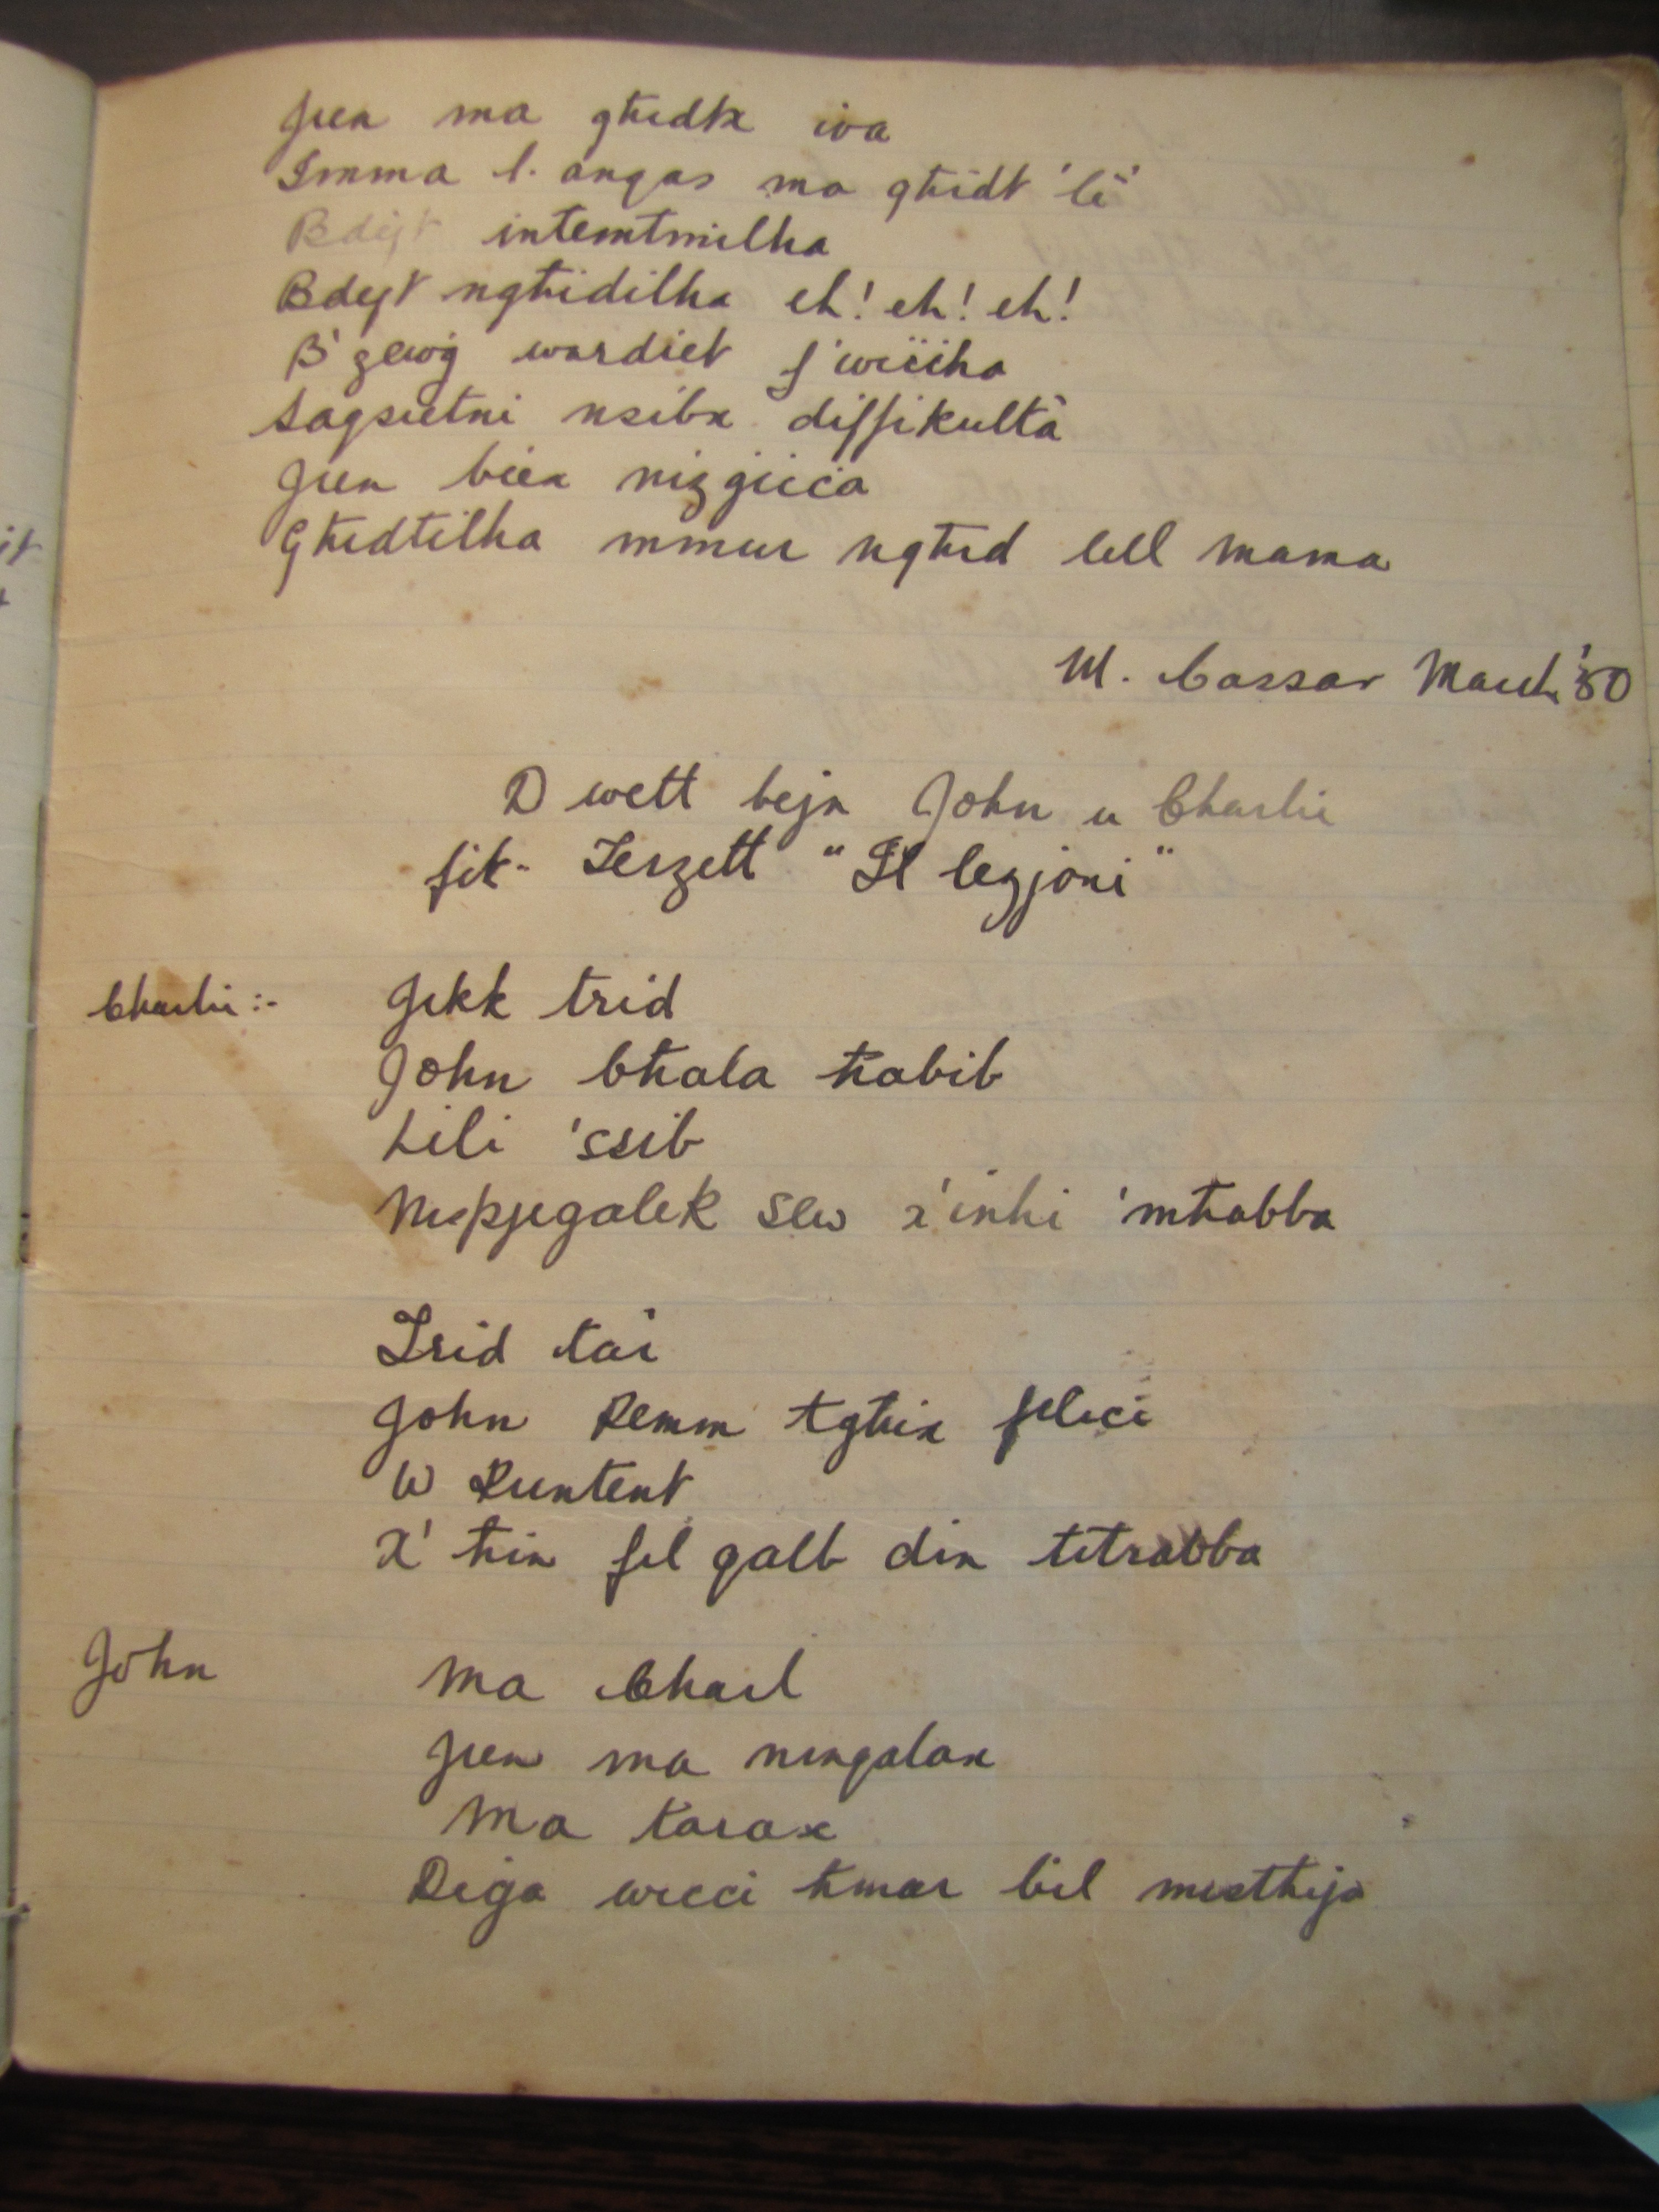 Jien ma għedtx iva
Imma l. anqas ma għidt 'le'
Bdejt intemtmilha
Bdejt ngħidilha eh! eh! eh!
B' żewġ wardiet f'wiċċha
Saqsietni nsibx diffikultà
Jien biex niżġiċċa
Għedtilha mmur ngħid lill mama
M. Cassar March '50
Dwett bejn John u Charlie
fit- Terzett "Il legjoni"
Charlie :- Jekk trid
John bħala ħabib
Lili 'ssib
Nispjegalek sew x'inhi 'mħabba
Trid taċ
John Kemm tgħix feliċi
W Kuntent
X' ħin fil qalb din titrabba
John Ma Charl
Jien ma ninqalax
Ma tarax
Diġa wiċċi ħmar bil mistħija